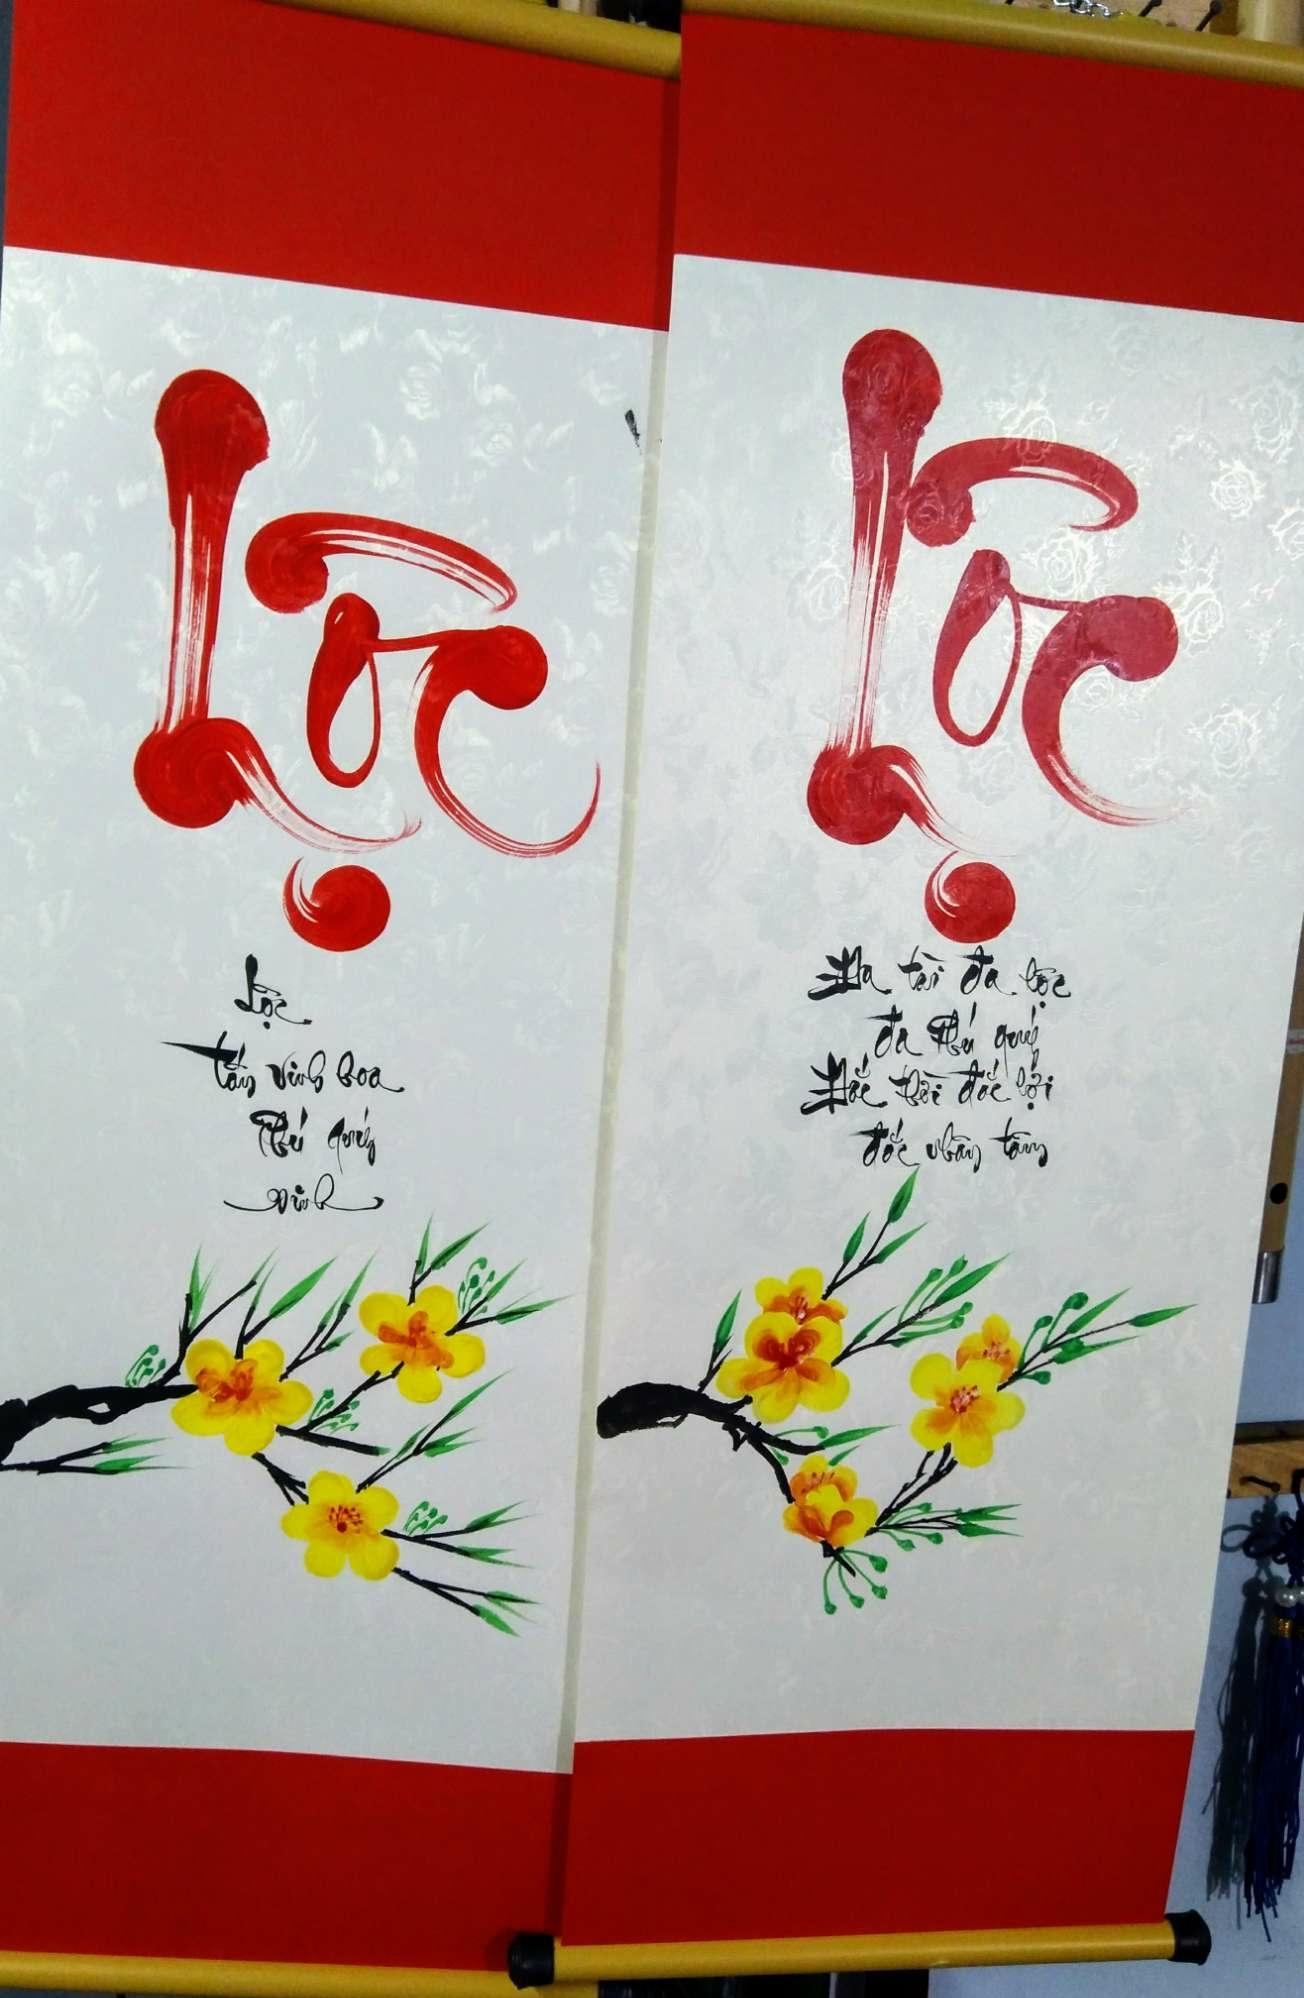 Lộc
Lộc
tấn vinh hoa
Phú quý
vinh
Lộc
Đa tài đa lộc
đa Phú quý
Đắc thời đắc lợi
đắc nhân tâm